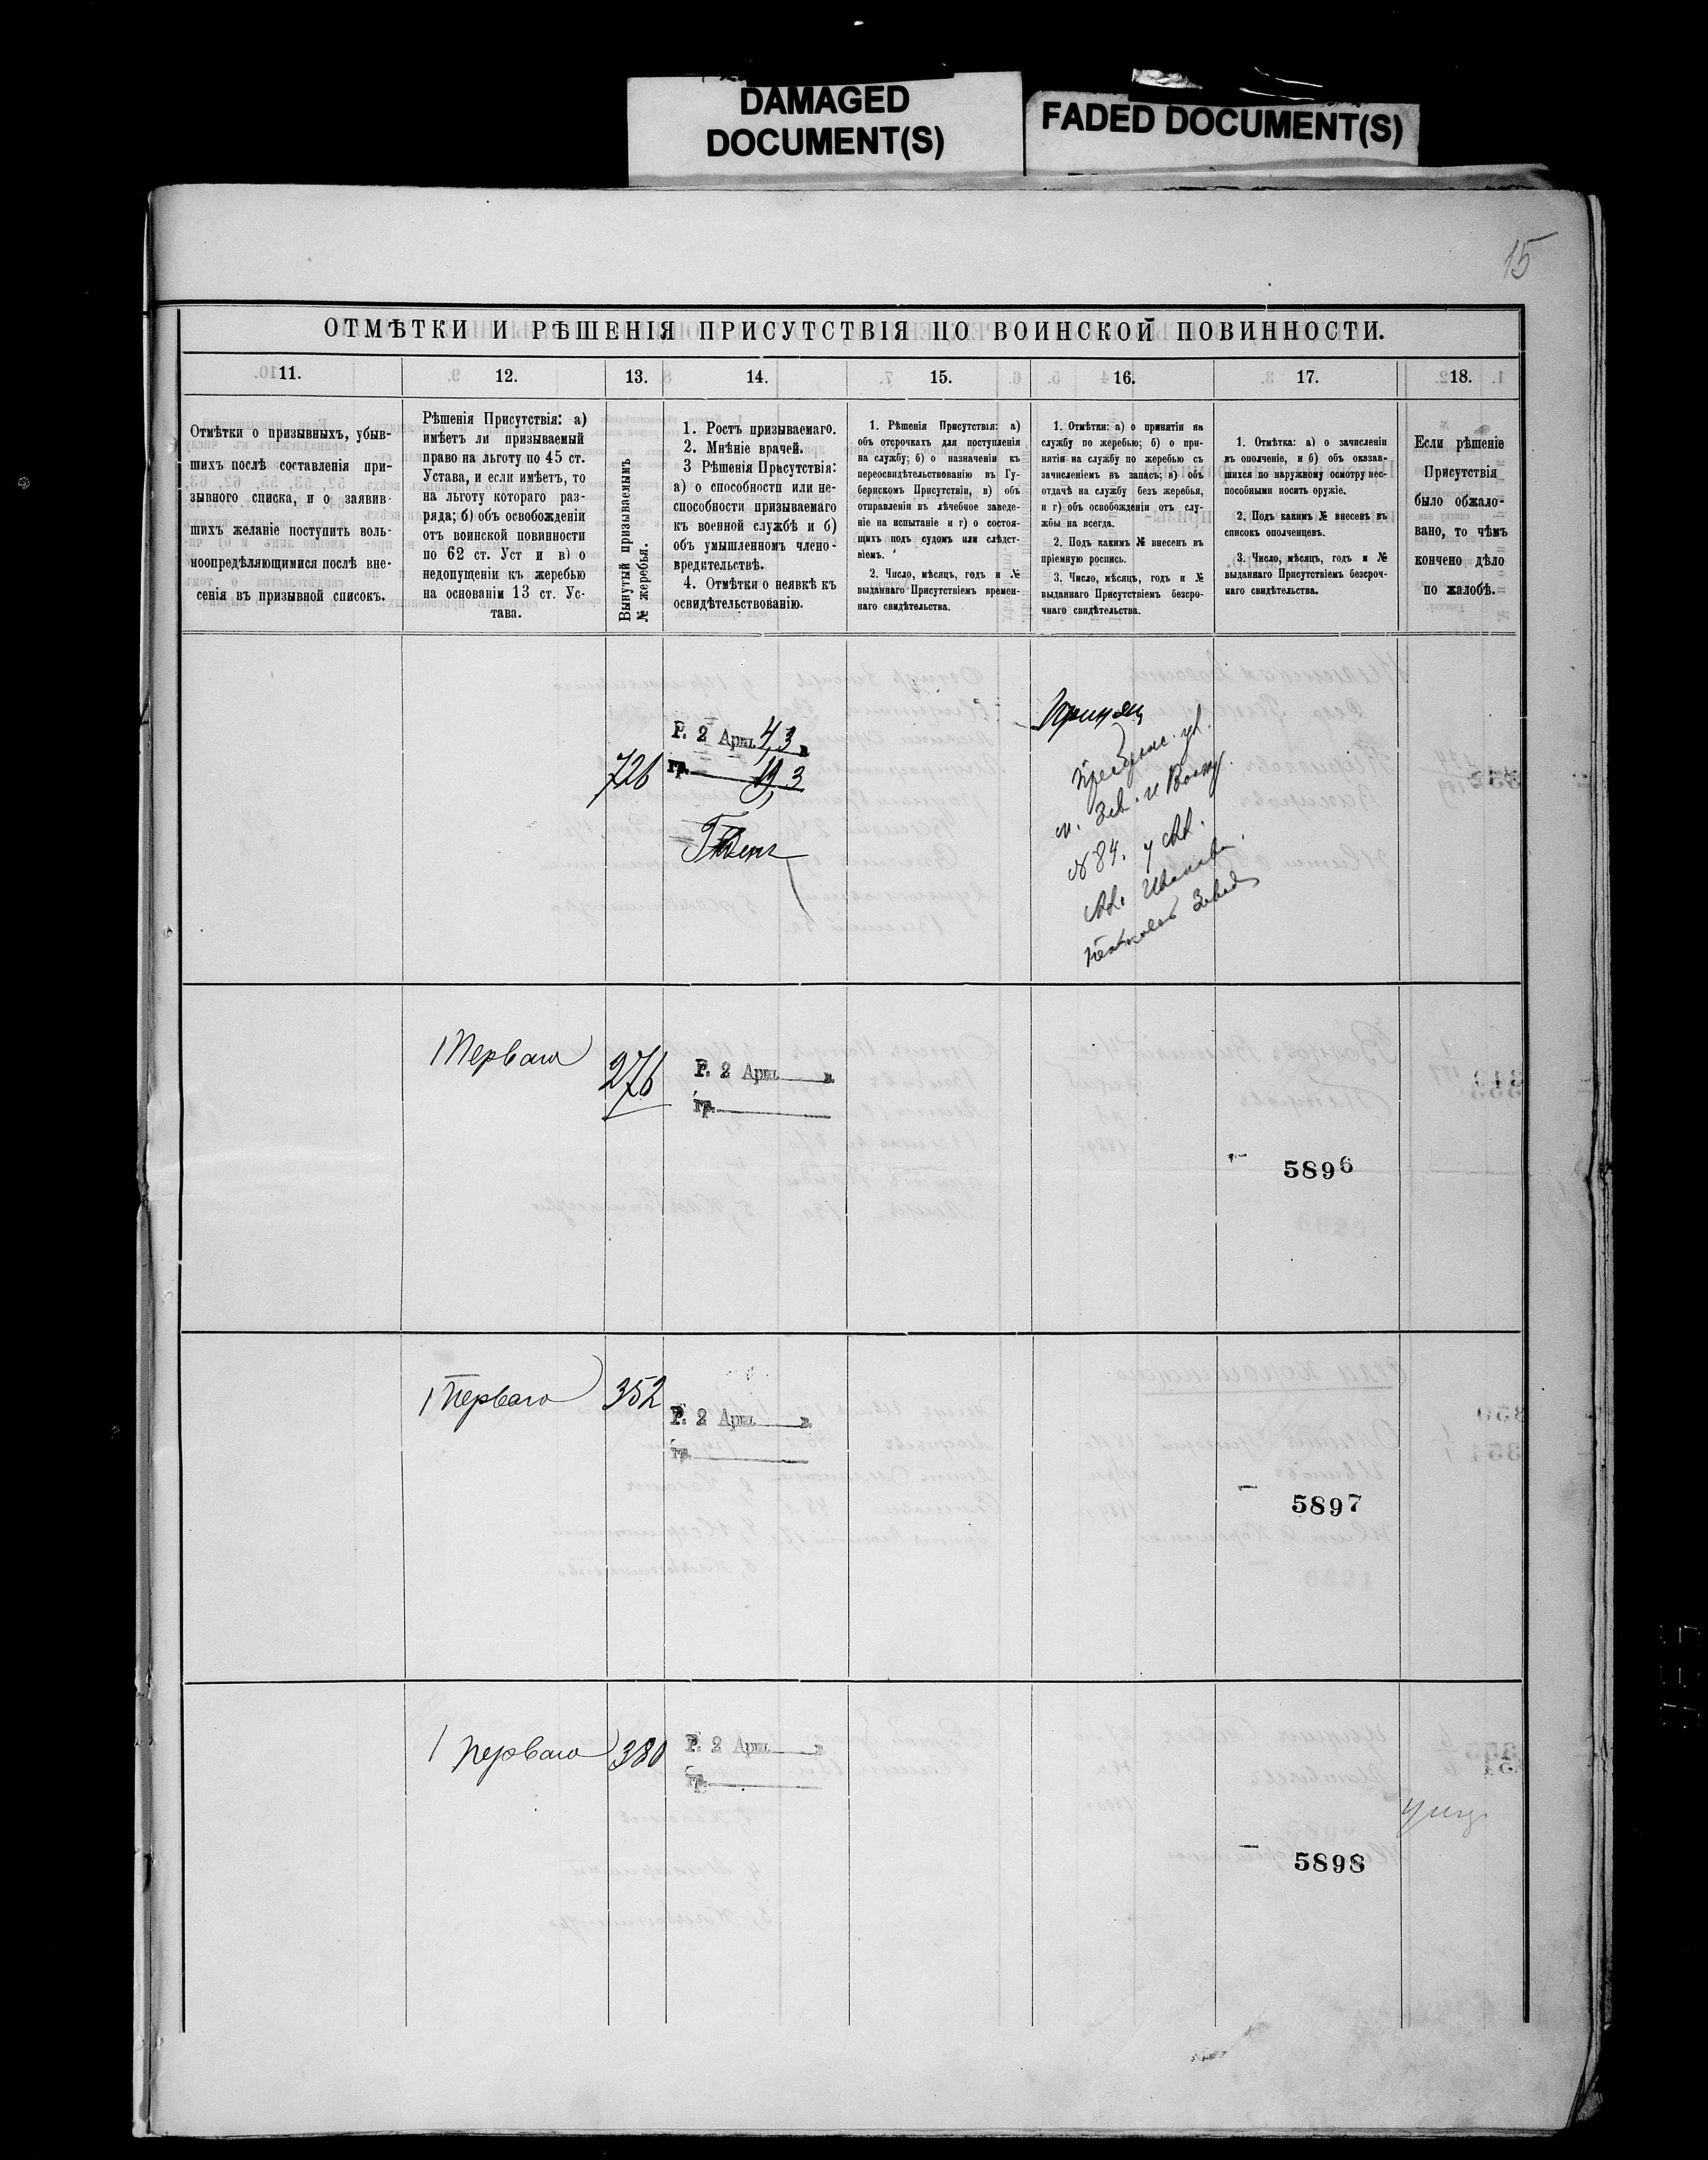 DAMAGED
DOCUMENT(S)
FADED DOCUMENT(S)
15
ОТМѢТКИ И РѢШЕНІЯ ПРИСУТСТВІЯ ПО ВОИНСКОЙ ПОВИННОСТИ.
11.
12.
13.
14.
15.
16.
17.
18.
Отмѣтки о призывныхъ, убыв-
шихъ послѣ составленія при-
зывного списка, и о заявив-
шихъ желаніе поступить воль-
ноопредѣляющимися послѣ вне-
сенія въ призывной списокъ.
Рѣшенія Присутствія: а)
имѣетъ ли призываемый
право на льготу по 45 ст.
Устава, и если имѣетъ, то
на льготу котораго раз-
ряда; б) объ освобожденіи
отъ воинской повинности
по 62 ст. Уст и в) о
недопущеніи къ жеребью
на основаніи 13 ст. Ус-
тава.
Вынутый призываемымъ
№ жеребья.
1. Ростъ призываемаго.
2. Мнѣніе врачей.
3 Рѣшенія Присутствія:
а) о способности или не-
способности призываемаго
къ военной службѣ и б)
объ умышленномъ члено-
вредительствѣ.
4. Отмѣтки о неявкѣ къ
освидѣтельствованію.
1. Рѣшенія Присутствія: а)
объ отсрочкахъ для поступленія
на службу; б) о назначеніи къ
переосвидѣтельствованію въ Гу-
бернскомъ Присутствіи, в) объ
отправленіи въ лѣчебное заведе-
ніе на испытаніе и г) о состоя-
щихъ подъ судомъ или слѣдст-
віемъ.
2. Число, мѣсяцъ, годъ и №
выданнаго Присутствіемъ времен-
наго свидѣтельства.
1. Отмѣтки: а) о принятіи на
службу по жеребью; б) о при-
нятіи на службу по жеребью съ
зачисленіемъ въ запасъ; в) объ
отдачѣ на службу безъ жеребья,
и г) объ освобожденіи отъ слу-
жбы на всегда.
2. Подъ какимъ № внесенъ въ
пріемную роспись.
3. Число, мѣсяцъ, годъ и №
выданнаго Присутствіемъ безсро-
чнаго свидѣтельства.
1. Отмѣтка: а) о зачисленіи
въ ополченіе, и б) объ оказав-
шихся по наружному осмотру нес-
пособными носить оружіе.
2. Подъ какимъ № внесенъ въ
списокъ ополченцевъ.
3. Число, мѣсяцъ, годъ и №
выданнаго Присутствіемъ безсроч-
наго свидѣтельства.
Если рѣшеніе
Присутствія
было обжало-
вано, то чѣмъ
кончено дѣло
по жалобѣ.
726
Р. 2 Арш. 4,3 в
гр. 19,3
Годенъ
Принятъ
№ 84.
1 Перваго
276
Р. 2 Арш. в.
гр.
5896
1 Перваго
352
Р. 2 Арш. в.
гр.
5897
1 перваго
380
Р. 2 Арш. в
гр.
5898